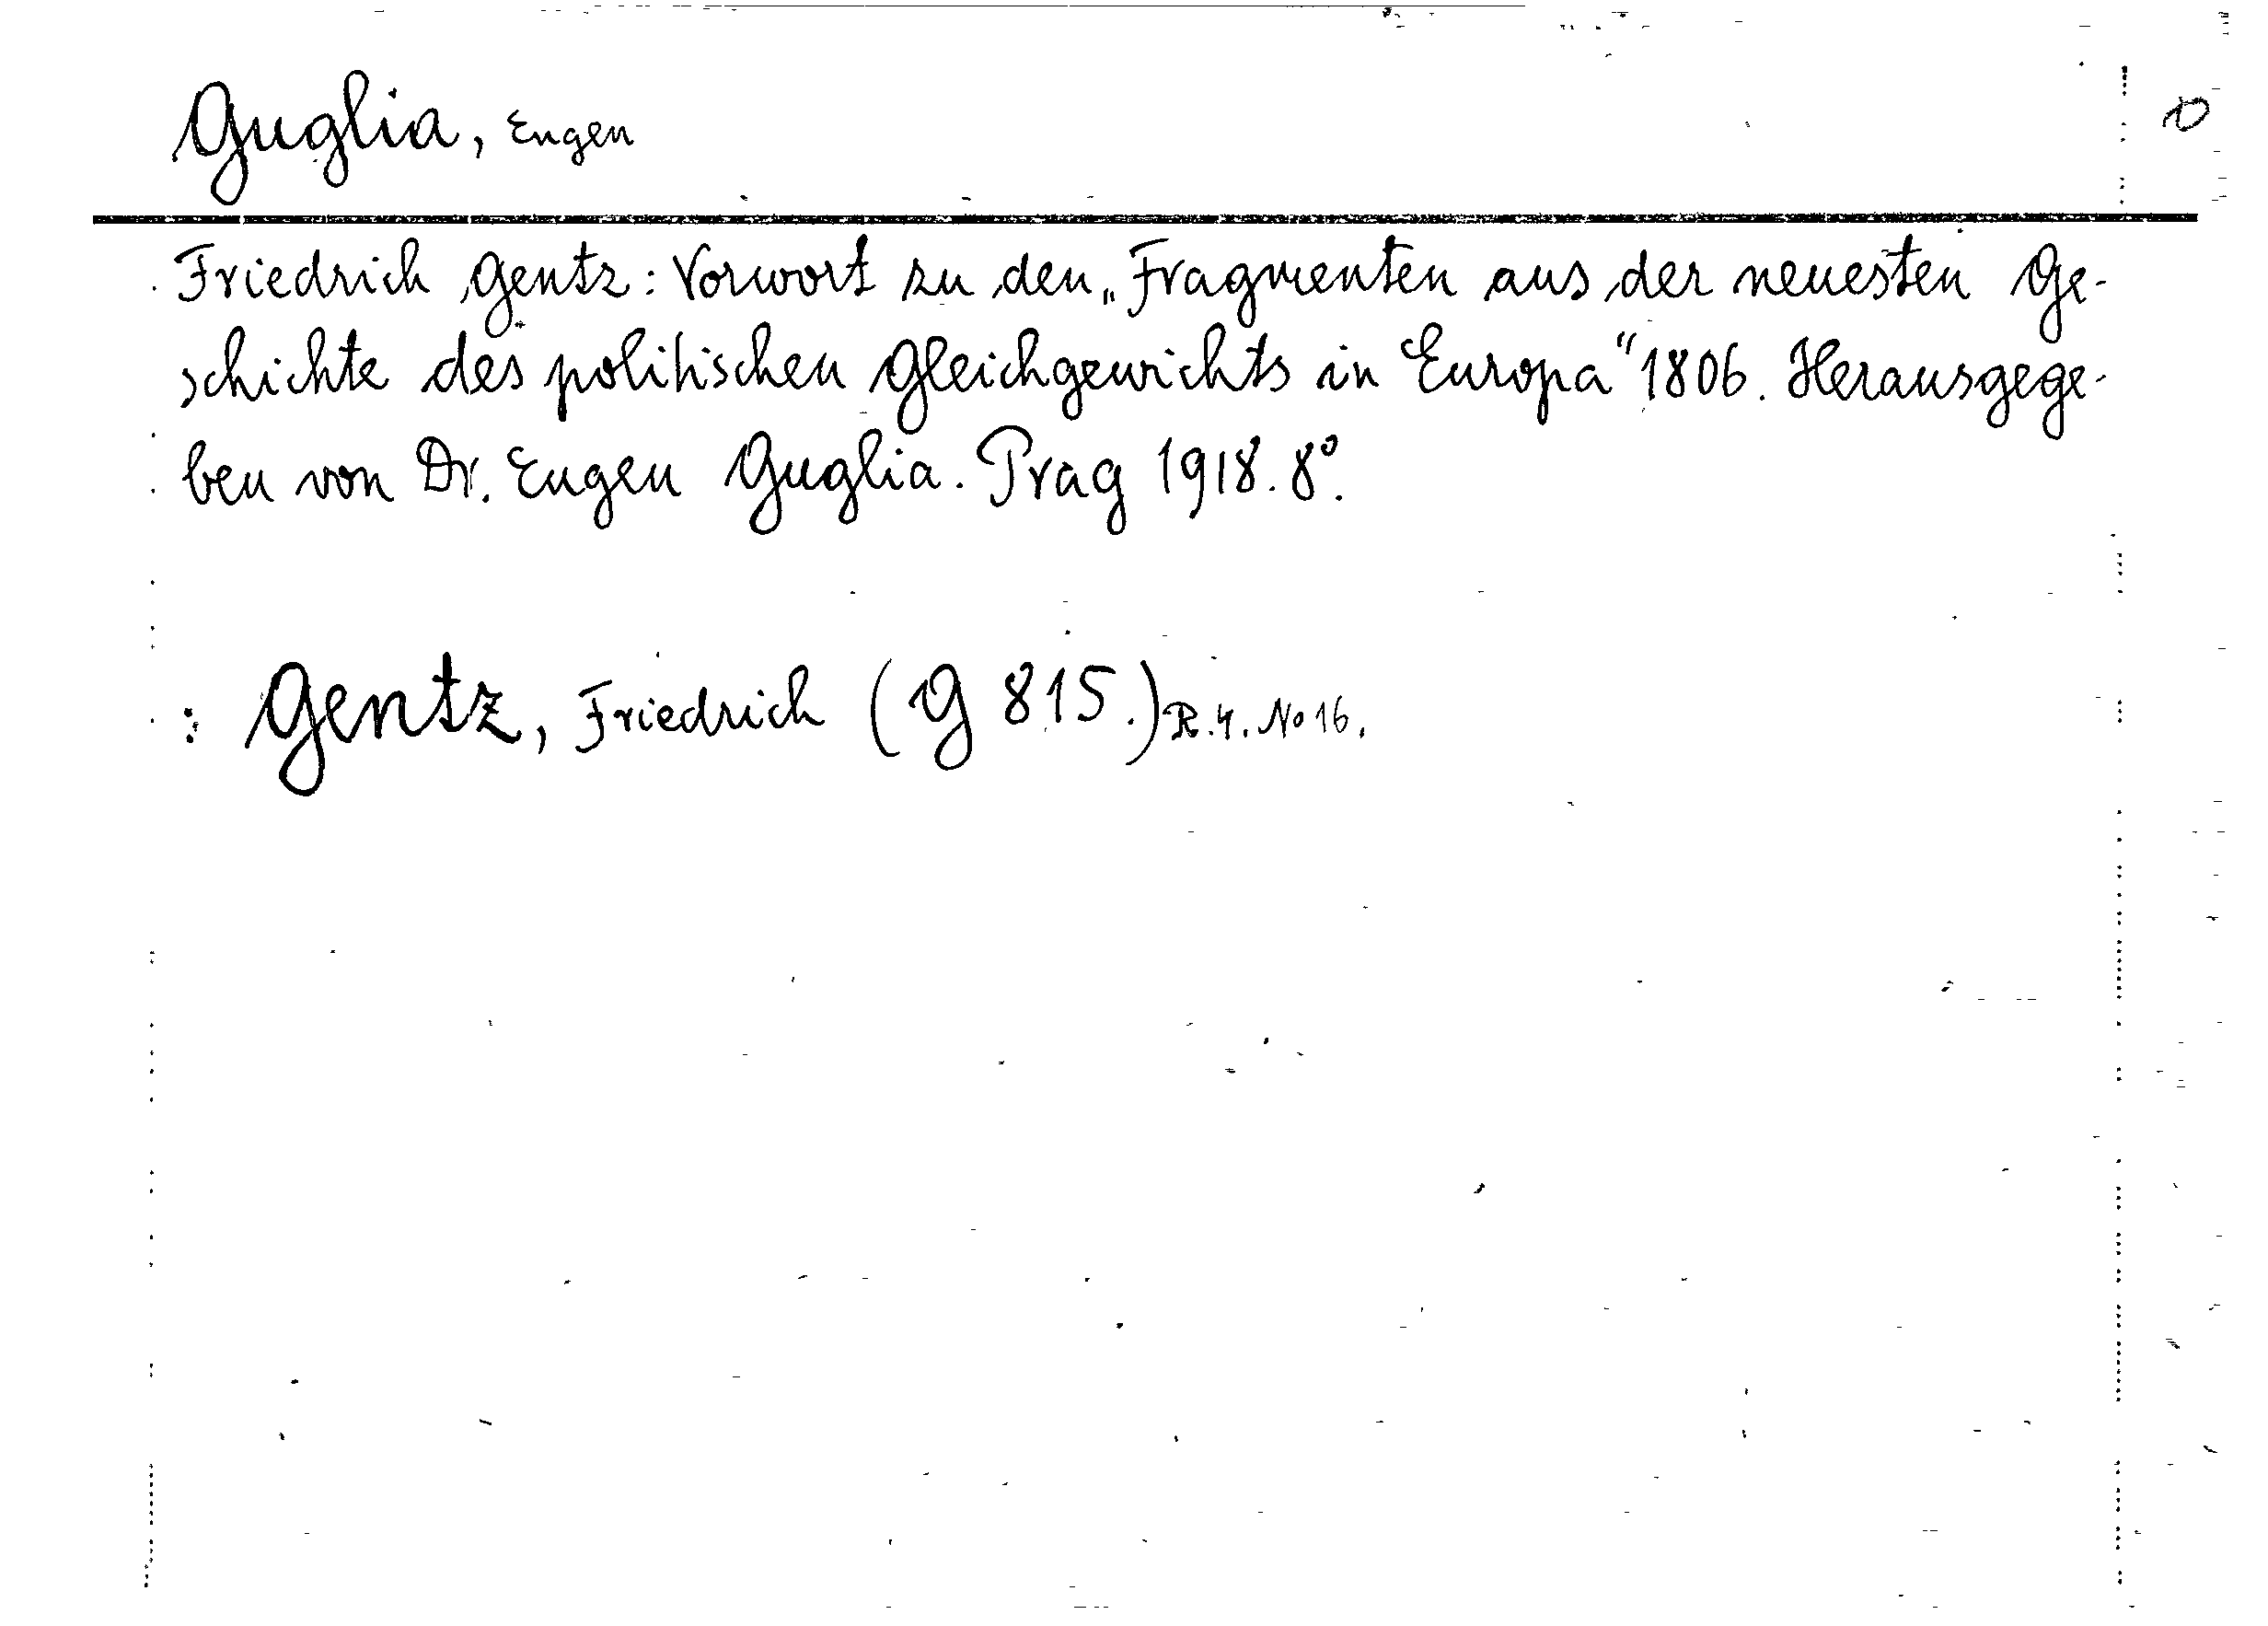 Guglia, Eugen
Friedrich Gentz: Vorwort zu den „Fragmenten aus der neuesten Ge-
schichte des politischen Gleichgewichts in Europa“ 1806. Herausgege-
ben von Dr. Eugen Guglia. Prag 1918. 8°.
: Gentz, Friedrich (G 815.) R.4. No 16.